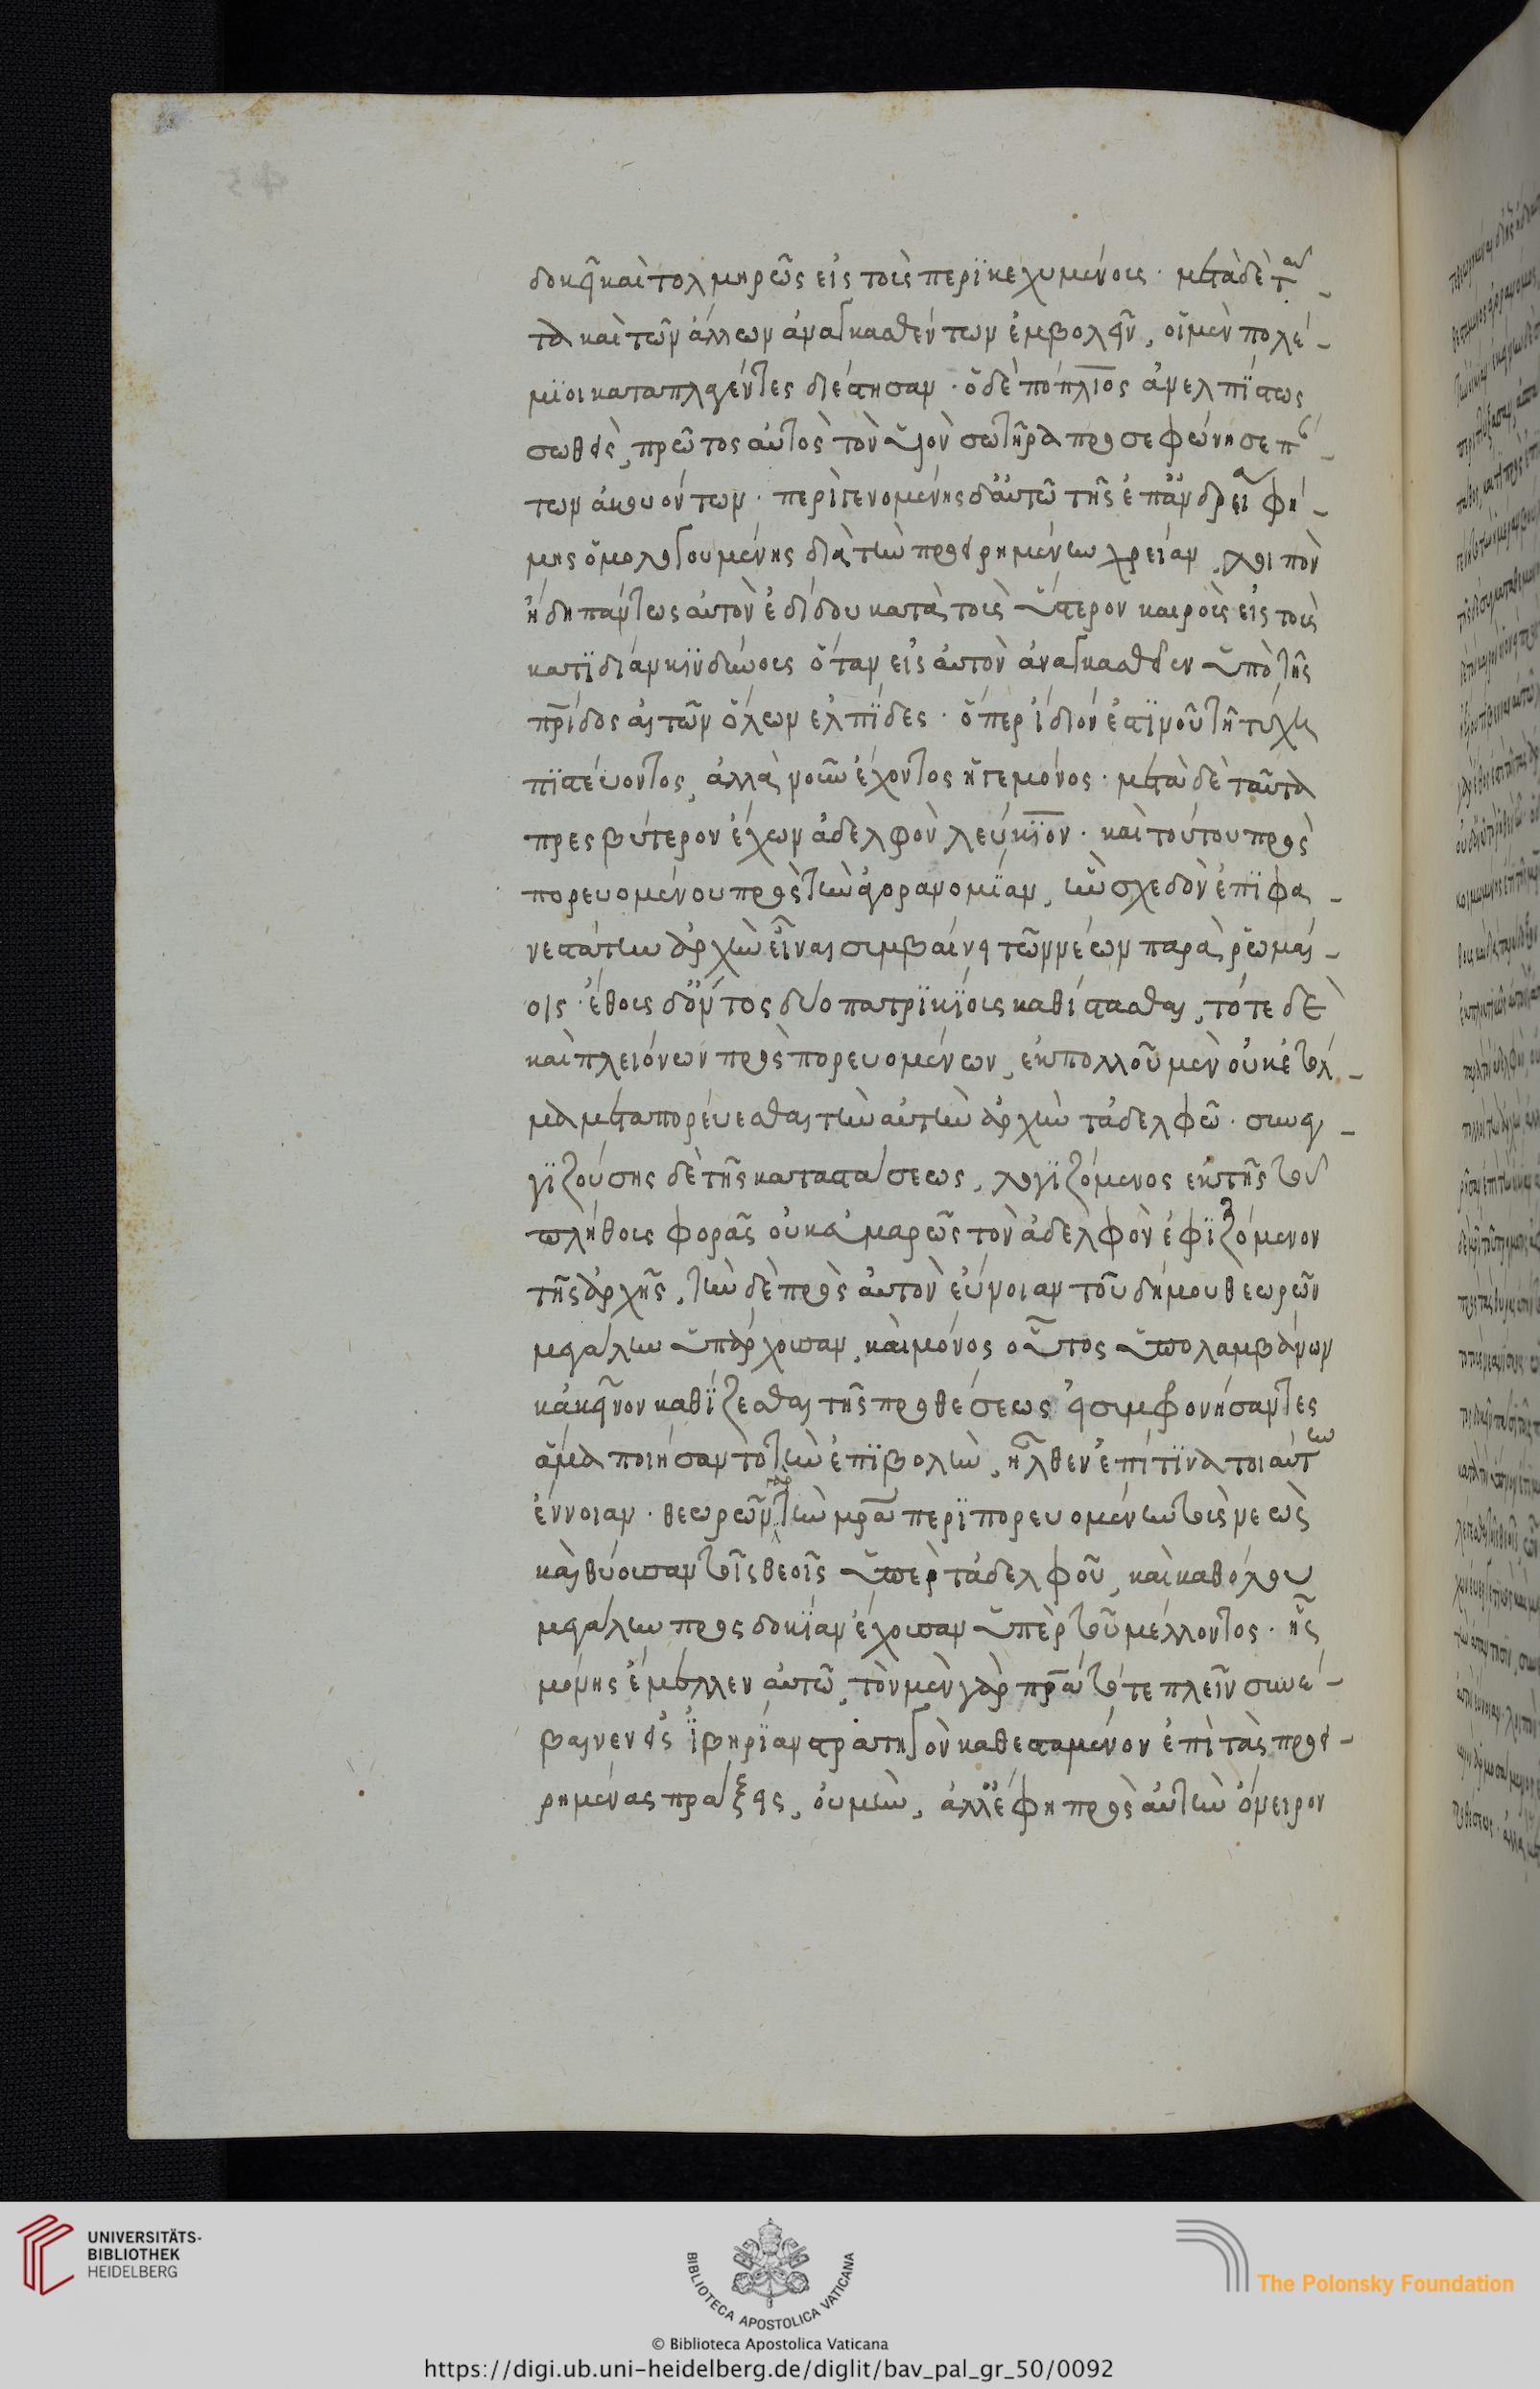 δοκεῖ καὶ τολμηρῶς εἰς τοὺς περϊκεχυμένους · μετὰ δὲ ταῦ-
τα καὶ τῶν ἄλλων ἀναγκασθέντων ἐμβολεῖν, οἱ μὲν πολέ-
μϊοι καταπλαγέντες διέστησαν · ὁ δὲ πόπλϊος ἀνελπΐστως
σωθεὶς, πρῶτος αὐτὸς τὸν υἱὸν σωτῆρα προσεφώνησε πάν-
των ἀκουόντων · περιγενομένης δ' αὐτῶ τῆς ἐπ' ἀνδρεία φή-
μης ὁμολογουμένης διὰ τὴν προειρημένην χρείαν, λοιπὸν
ἤδη πάντως αὐτὸν ἐδίδου κατὰ τοὺς ὕστερον καιροὺς εἰς τοὺς
κατϊδίαν κϊνδύνους ὅταν εἰς αὐτὸν ἀναγκασθεῖεν ὑπὸ τῆς
πρίδος αἱ τῶν ὅλων ἐλπΐδες · ὅπερ ἴδιόν ἐστϊν οὐ τῆ τύχη
πϊστεύοντος, ἀλλὰ νοῦν ἔχοντος ἡγεμόνος · μετὰ δὲ ταῦτα
πρεσβύτερον ἔχων ἀδελφὸν λεύκϊον · καὶ τούτου προς
πορευομένου πρὸς τὴν ἀγορανομΐαν, ἣν σχεδὸν ἐπϊφα-
νεστάτην ἀρχὴν εἶναι συμβαίνει τῶν νέων παρὰ ῥωμαί-
οις · ἔθους δ' ὄντος δύο πατρϊκΐους καθίστασθαι, τότε δὲ
καὶ πλειόνων προσπορευομένων, ἐκ πολλοῦ μὲν οὐκ ἐτόλ-
μα μεταπορεύεσθαι τὴν αὐτὴν ἀρχὴν τἀδελφῶ · συνεγ-
γϊζούσης δὲ τῆς καταστάσεως, λογϊζόμενος ἐκ τῆς τοῦ
πλήθους φορᾶς οὐκ εὐμαρῶς τὸν ἀδελφὸν ἐφϊζόμενον
τῆς ἀρχῆς, τὴν δὲ πρὸς αὐτὸν εὔνοιαν τοῦ δήμου θεωρῶν
μεγάλην ὑπάρχουσαν, καὶ μόνος οὕτος ὑπολαμβάνων
κἀκεῖνον καθΐζεσθαι τῆς προθέσεως εἰ συμφονήσαντες
ἅμα ποιήσαντο τὴν ἐπϊβολὴν, ἦλθεν ἐπί τϊνα τοιαύτην
ἔννοιαν · θεωρῶν γὰρ τὴν μρα περϊπορευομένην τοὺς νεὼς
καὶ θύουσαν τοῖς θεοῖς ὑπὲρ τἀδελφοῦ, καὶ καθόλου
μεγάλην προσδοκΐαν ἔχουσαν ὑπὲρ τοῦ μέλλοντος · ἧς
μόνης ἔμελλεν αὐτῶ, τὸν μὲν γὰρ πρα τότε πλεῖν συνέ-
βαινεν εἰς ἰβηρΐαν στρατηγὸν καθεσταμένον ἐπὶ τὰς προει-
ρημένας πράξεις, οὐ μὴν, ἀλλ' ἔφη πρὸς αὐτὴν ὄνειρον
UNIVERSITÄTS-
BIBLIOTHEK
HEIDELBERG
BIBLIOTECA APOSTOLICA VATICANA
© Biblioteca Apostolica Vaticana
The Polonsky Foundation
https://digi.ub.uni-heidelberg.de/diglit/bav_pal_gr_50/0092